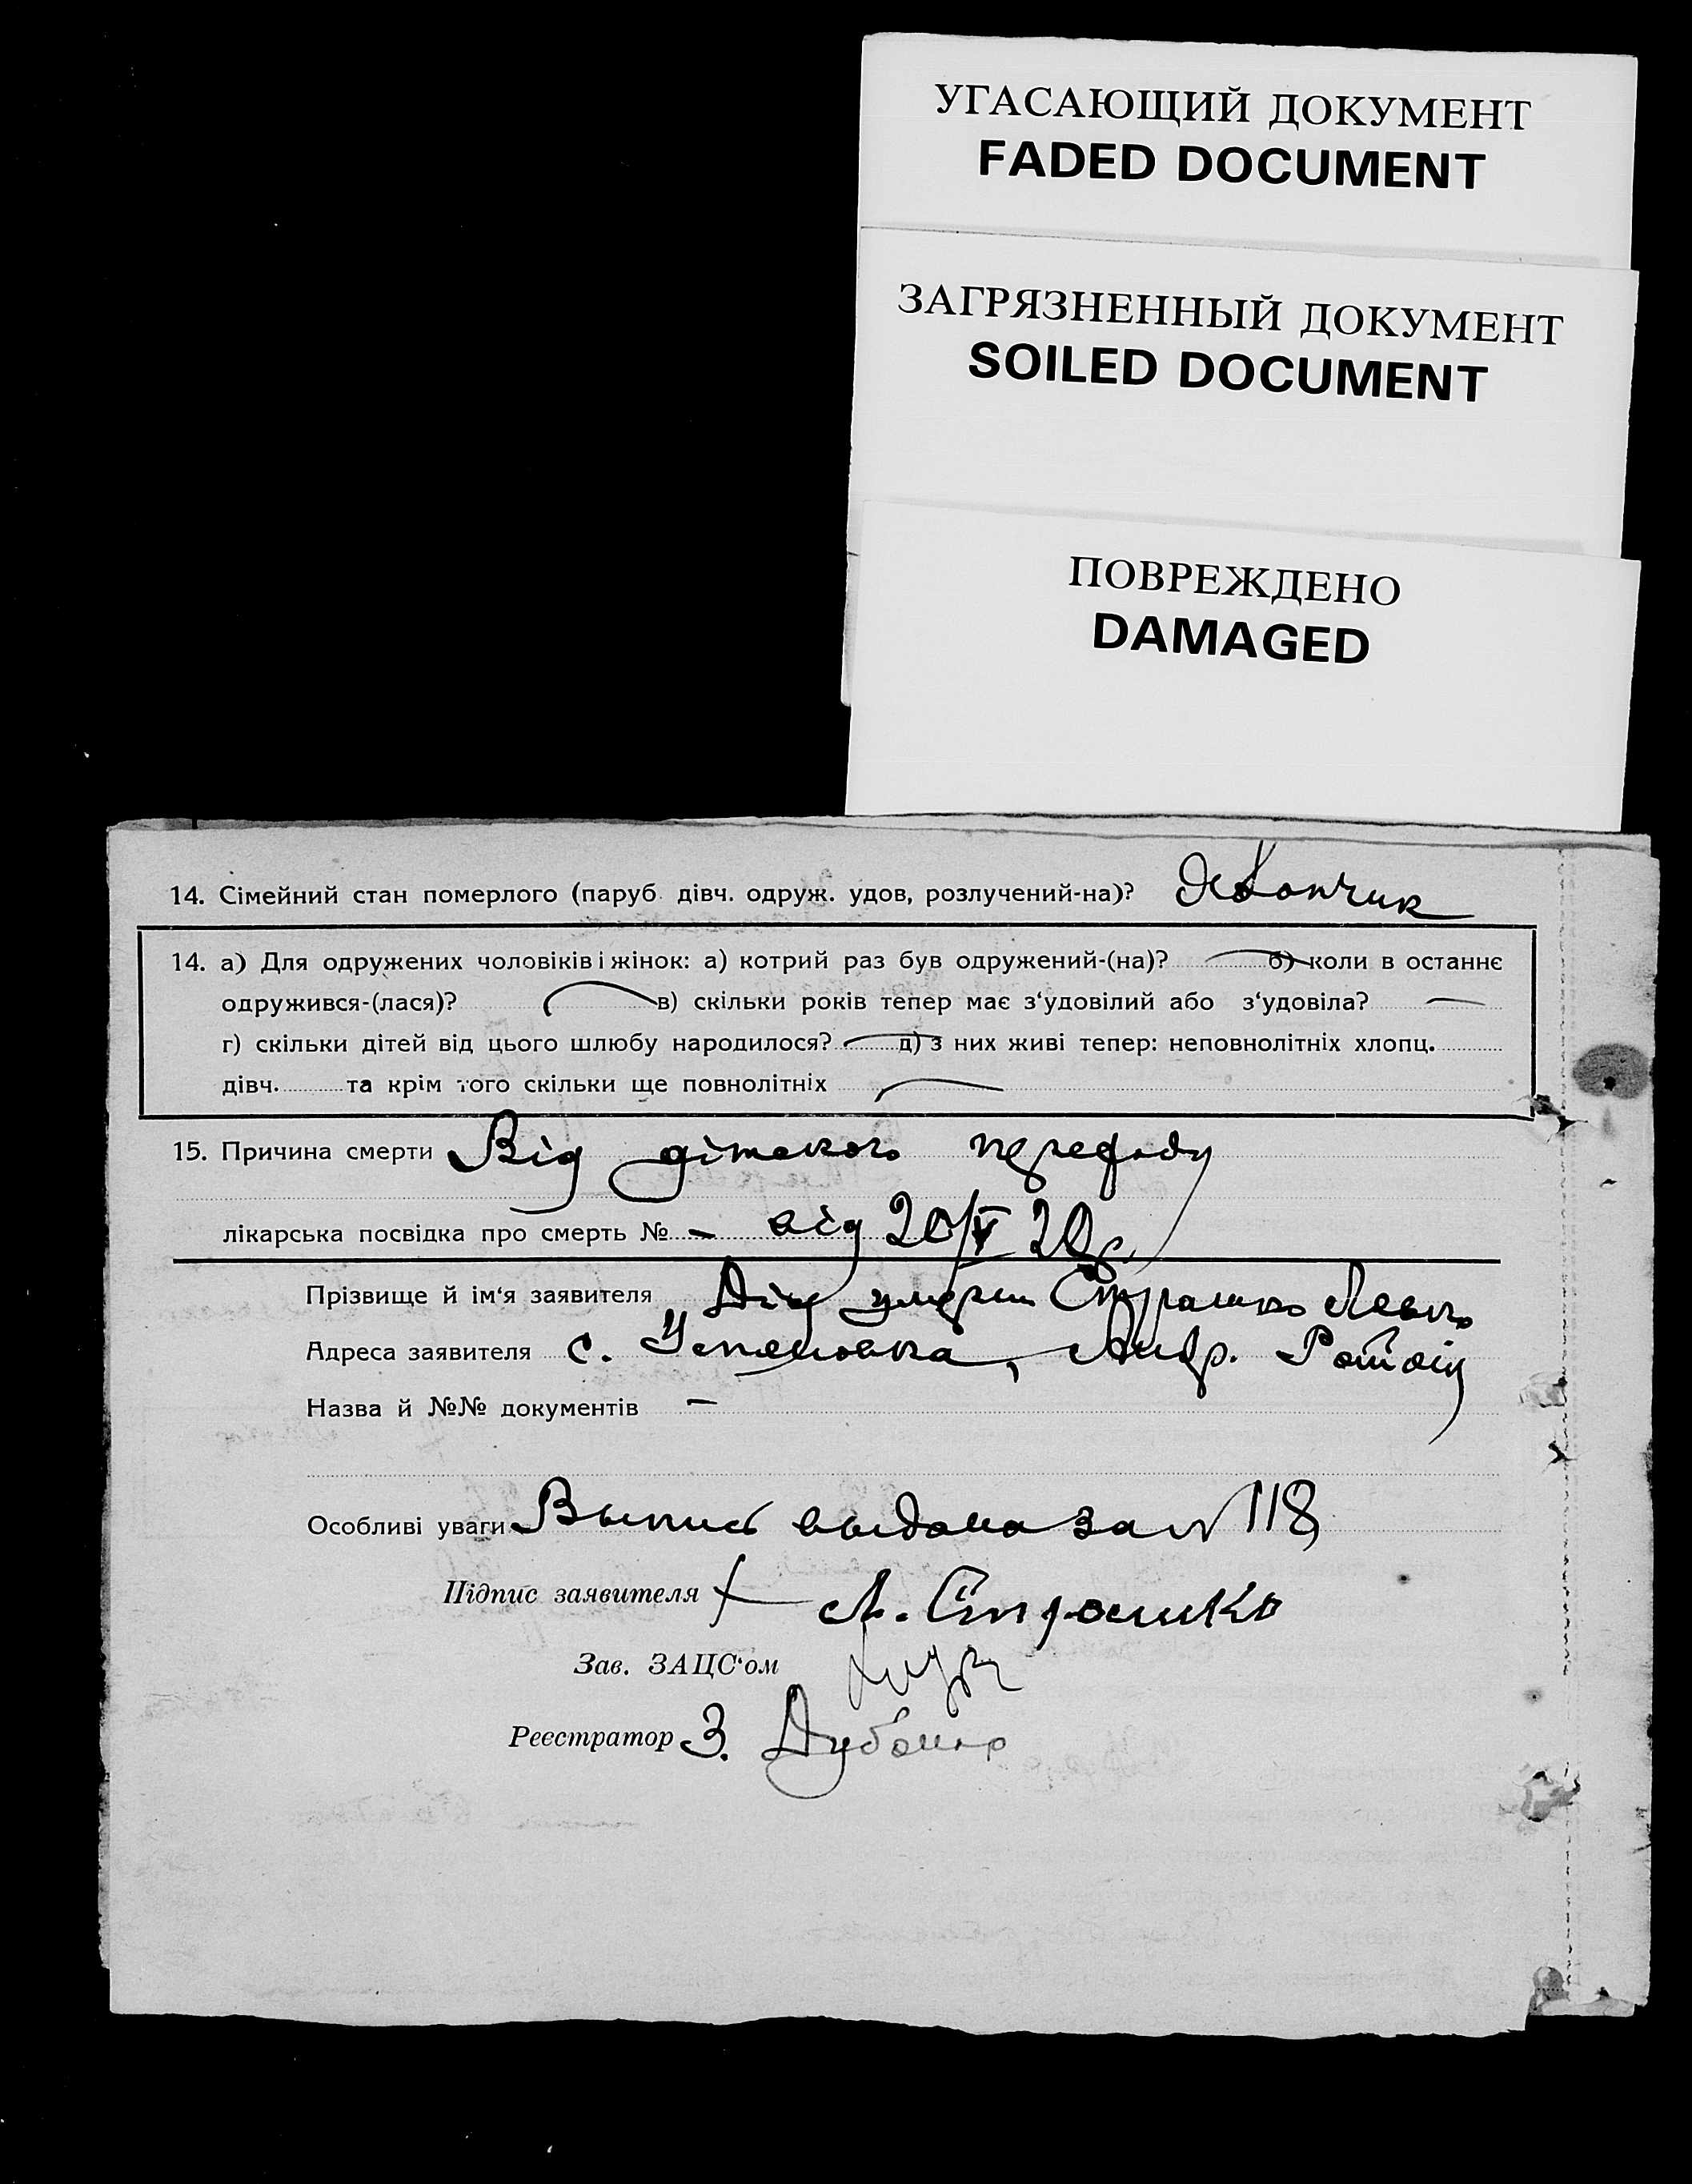 УГАСАЮЩИЙ ДОКУМЕНТ
FADED DOCUMENT
ЗАГРЯЗНЕННЫЙ ДОКУМЕНТ
SOILED DOCUMENT
ПОВРЕЖДЕНО
DAMAGED
14. Сімейний стан померлого (паруб. дівч. одруж. удов, розлучений-на)?
14. а) Для одружених чоловіків і жінок: а) котрий раз був одружений-(на)? б) коли в останнє
одружився-(лася)? в) скільки років тепер має з‘удовілий або з‘удовіла?
г) скільки дітей від цього шлюбу народилося? д) з них живі тепер: неповнолітніх хлопц.
дівч. та крім того скільки ще повнолітніх
15. Причина смерти Від дітского
лікарська посвідка про смерть № — від 20/V
Прізвище й ім‘я заявителя Дід Страшко
Адреса заявителя с.
Назва й №№ документів —
Особливі уваги Выпись выдана за № 118
Підпис заявителя Страшко
Зав. ЗАЦС‘ом
Реєстратор З.